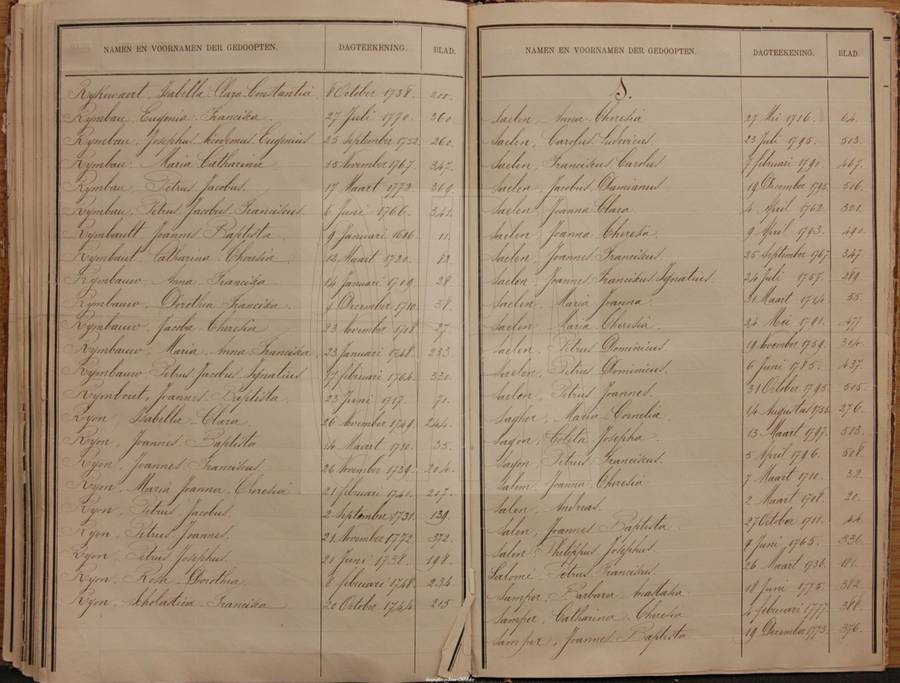 NAMEN EN VOORNAMEN DER GEDOOPTEN. DAGTEEKENING. BLAD.
Rykewaert Isabella Clara Constantia 8 October 1738. 200.
Rymbau Eugenia Francisca 27 Juli 1770. 360
Rymbau, Josephus Eugenius 25 September 1752. 260.
Rymbau, Maria Catharina 15 November 1767. 347.
Rymbau, Petrus Jacobus. 17 Maart 1773 369.
Rymbau, Petrus Jacobus Franciscus 6 Juni 1766. 341.
Rymbault Joannes Baptista 9 Januari 1686. 11.
Rymbaut Catharina Theresia Maart 1720.
Rymbauw Anna Francisca 14 Januari 1709. 28
Rymbauw, Dorothea Francisca December 1710 38.
Rymbauw Jacoba Theresia 23 November 1708 27
Rymbauw, Maria Anna Francisca 23 Januari 1748. 233
Rymbauw Petrus Jacobus Ignatius februari 1764. 330.
Rymbout, Joannes Baptista 23 Juni 1717. 70.
Ryon, Isabella Clara 26 November 1749. 244.
Ryon, Joannes Baptista Maart 35.
Ryon, Joannes Franciscus 26 November 1739. 204.
Ryon, Maria Joanna Theresia 21 februari 1741. 207.
Ryon, Petrus Jacobus. 2 September 1731. 139.
Ryon, Petrus Joannes. 21 November 1772 372.
Ryon, Petrus Josephus. 21 Juni 1738. 198.
Ryon, Rosa Dorothea 8 februari 1748. 234.
Ryon, Scholastica Francisca 20 October 1744 215
NAMEN EN VOORNAMEN DER GEDOOPTEN. DAGTEEKENING. BLAD.
S.
Saelen, Anna Theresia 27 Mei 1716. 64.
Saelen, Carolus Ludovicus 23 Juli 1795. 503.
Saelen, Franciscus Carolus 7 februari 1790. 467.
Saelen, Jacobus Damianus 19 December 1795 506.
Saelen, Joanna Clara 4 April 1762 321.
Saelen, Joanna Theresia 9 April 1793. 490.
Saelen, Joannes Franciscus 25 September 1767. 347.
Saelen, Joannes Franciscus Ignatius 24 Juli 1757. 289.
Saelen, Maria Joanna Maart 1714. 55.
Saelen, Maria Theresia 24 Mei 1791. 477
Saelen, Petrus Dominicus. 19 November 1759. 304.
Saelen, Petrus Dominicus. 6 Juni 1785. 437.
Saelen, Petrus Joannes. 31 October 1795 505.
Maria Cornelia 14 Augustus 276.
Sagon, Coleta Josepha 13 Maart 1797. 513.
Sagon, Petrus Franciscus. 5 April 1796. 508.
Salem Joanna Theresia 7 Maart 1710. 32.
Salen, Andreas. 2 Maart 1708. 21.
Salen, Joannes Baptista 27 October 1711. 44.
Salen, Philippus Josephus Juni 1765. 336.
Salomé Petrus Franciscus. 26 Maart 1736. 181.
Samper, Barbara Anastasia 18 Juni 1775. 382.
Samper, Catharina Theresia 4 februari 1777. 388.
Samper, Joannes Baptista 19 December 1773. 376.